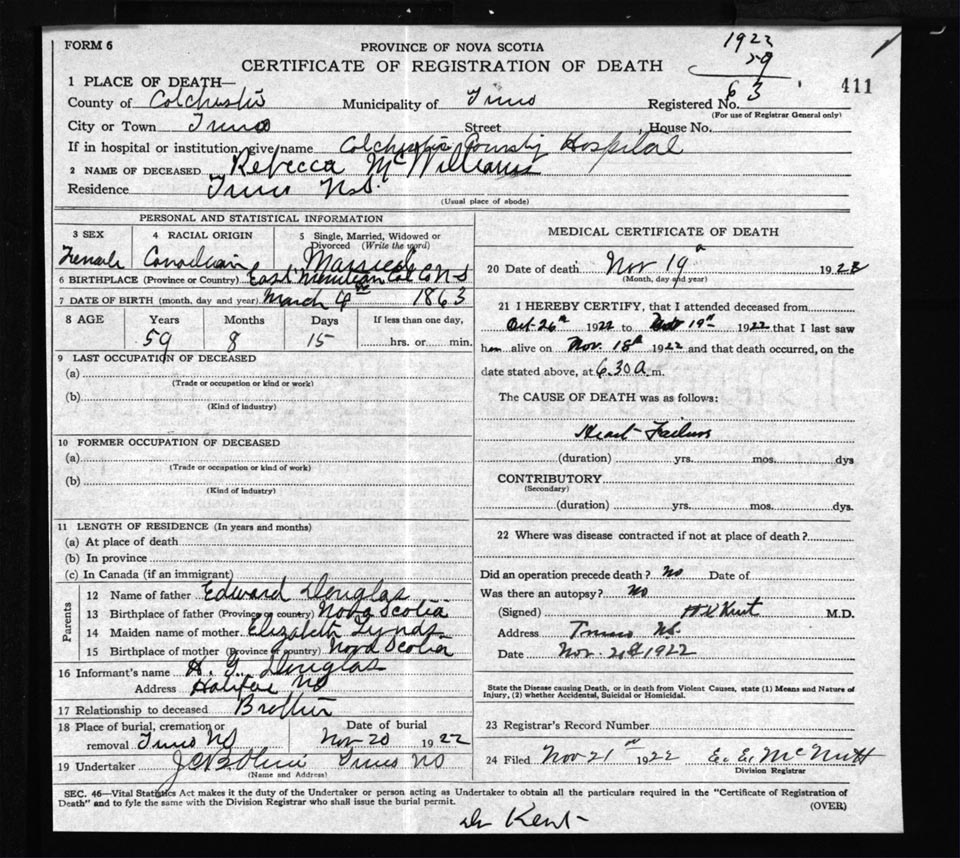 FORM 6
PROVINCE OF NOVA SCOTIA
1922
CERTIFICATE OF REGISTRATION OF DEATH
59
411
1 PLACE OF DEATH—
County of Colchester Municipality of Truro Registered No. 63
(For use of Registrar General only)
City or Town Truro Street House No.
If in hospital or institution, give name Colchester County Hospital
2 NAME OF DECEASED Rebecca McWilliams
Residence Truro N.S.
(Usual place of abode)
PERSONAL AND STATISTICAL INFORMATION
3 SEX 4 RACIAL ORIGIN 5 Single, Married, Widowed or Divorced (Write the word)
Female Canadian Married
6 BIRTHPLACE (Province or Country) East Col Co N S
7 DATE OF BIRTH (month, day and year) March 4th 1863
8 AGE Years Months Days If less than one day,
59 8 15 hrs. or min.
9 LAST OCCUPATION OF DECEASED
(a)
(Trade or occupation or kind or work)
(b)
(Kind of industry)
10 FORMER OCCUPATION OF DECEASED
(a)
(Trade or occupation or kind of work)
(b)
(Kind of industry)
11 LENGTH OF RESIDENCE (In years and months)
(a) At place of death
(b) In province
(c) In Canada (if an immigrant)
Parents
12 Name of father Edward Douglas
13 Birthplace of father (Province or country) Nova Scotia
14 Maiden name of mother Elizabeth Lynds
15 Birthplace of mother (Province or country) Nova Scotia
16 Informant's name H. Y. Douglas
Address Halifax NS
17 Relationship to deceased Brother
18 Place of burial, cremation or removal Truro NS
Date of burial Nov 20 1922
19 Undertaker Truro NS
(Name and Address)
MEDICAL CERTIFICATE OF DEATH
20 Date of death Nov 19th 1922
(Month, day and year)
21 I HEREBY CERTIFY, that I attended deceased from
Oct 26th 1922 to Nov 19th 1922 that I last saw
her alive on Nov. 18th 1922 and that death occurred, on the
date stated above, at 6.30 a.m.
The CAUSE OF DEATH was as follows:
Heart Failure
(duration) yrs. mos. dys
CONTRIBUTORY
(Secondary)
(duration) yrs. mos. dys.
22 Where was disease contracted if not at place of death?
Did an operation precede death? No Date of
Was there an autopsy? No
(Signed) H V Kent M.D.
Address Truro NS.
Date Nov. 1922
State the Disease causing Death, or in death from Violent Causes, state (1) Means and Nature of
Injury, (2) whether Accidental, Suicidal or Homicidal.
23 Registrar's Record Number
24 Filed Nov 21st 1922 E. E. McNutt
Division Registrar
SEC. 46—Vital Statistics Act makes it the duty of the Undertaker or person acting as Undertaker to obtain all the particulars required in the "Certificate of Registration of
Death" and to fyle the same with the Division Registrar who shall issue the burial permit.
(OVER)
Dr Kent